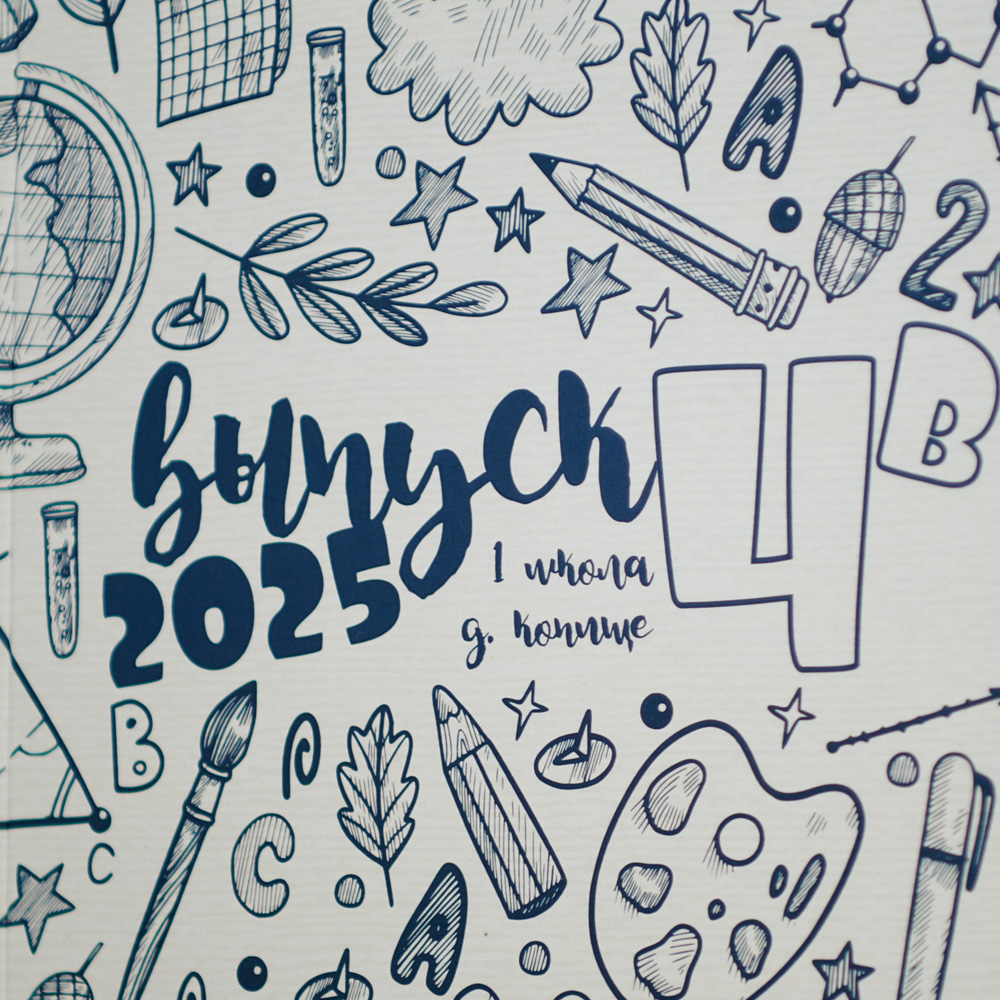 A
2
выпуск 4 В
2025
1 школа
д. копище
B
C
C
A